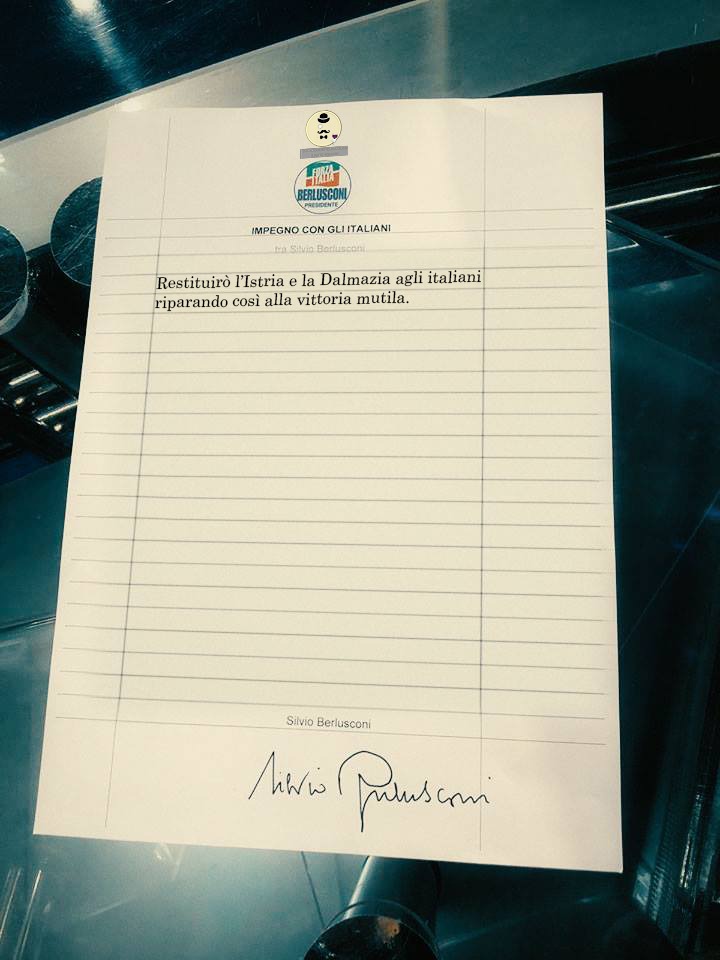 FORZA
ITALIA
BERLUSCONI
PRESIDENTE
IMPEGNO CON GLI ITALIANI
tra Silvio Berlusconi
Restituirò l'Istria e la Dalmazia agli italiani
riparando così alla vittoria mutila.
Silvio Berlusconi
Silvio Berlusconi